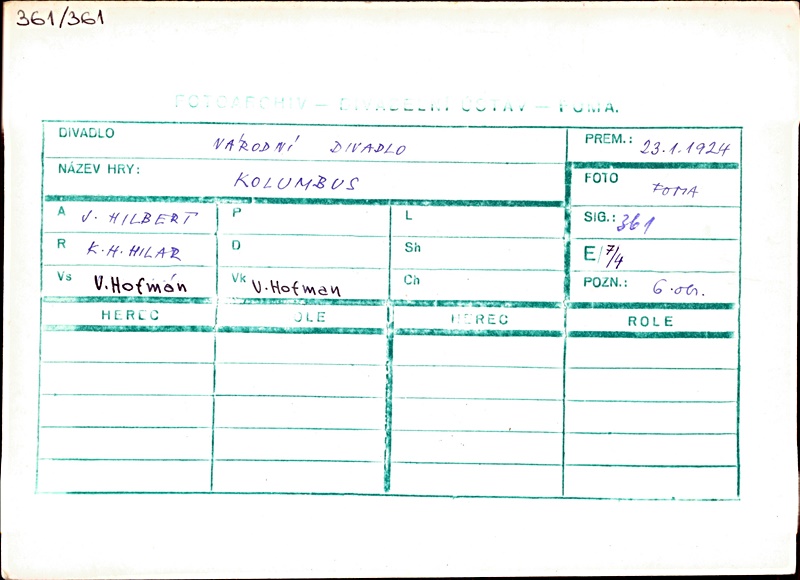 361/361
FOTOARCHIV – DIVADELNÍ ÚSTAV – FOMA.
DIVADLO NÁRODNÍ DIVADLO PREM.: 23.1.1924
NÁZEV HRY: KOLUMBUS FOTO FOMA
A J. HILBERT P L SIG.: 361
R K.H. HILAR D Sh E/7/4
Vs V.Hofmán Vk V.Hofman Ch POZN.: 6.
HEREC OLE HEREC ROLE